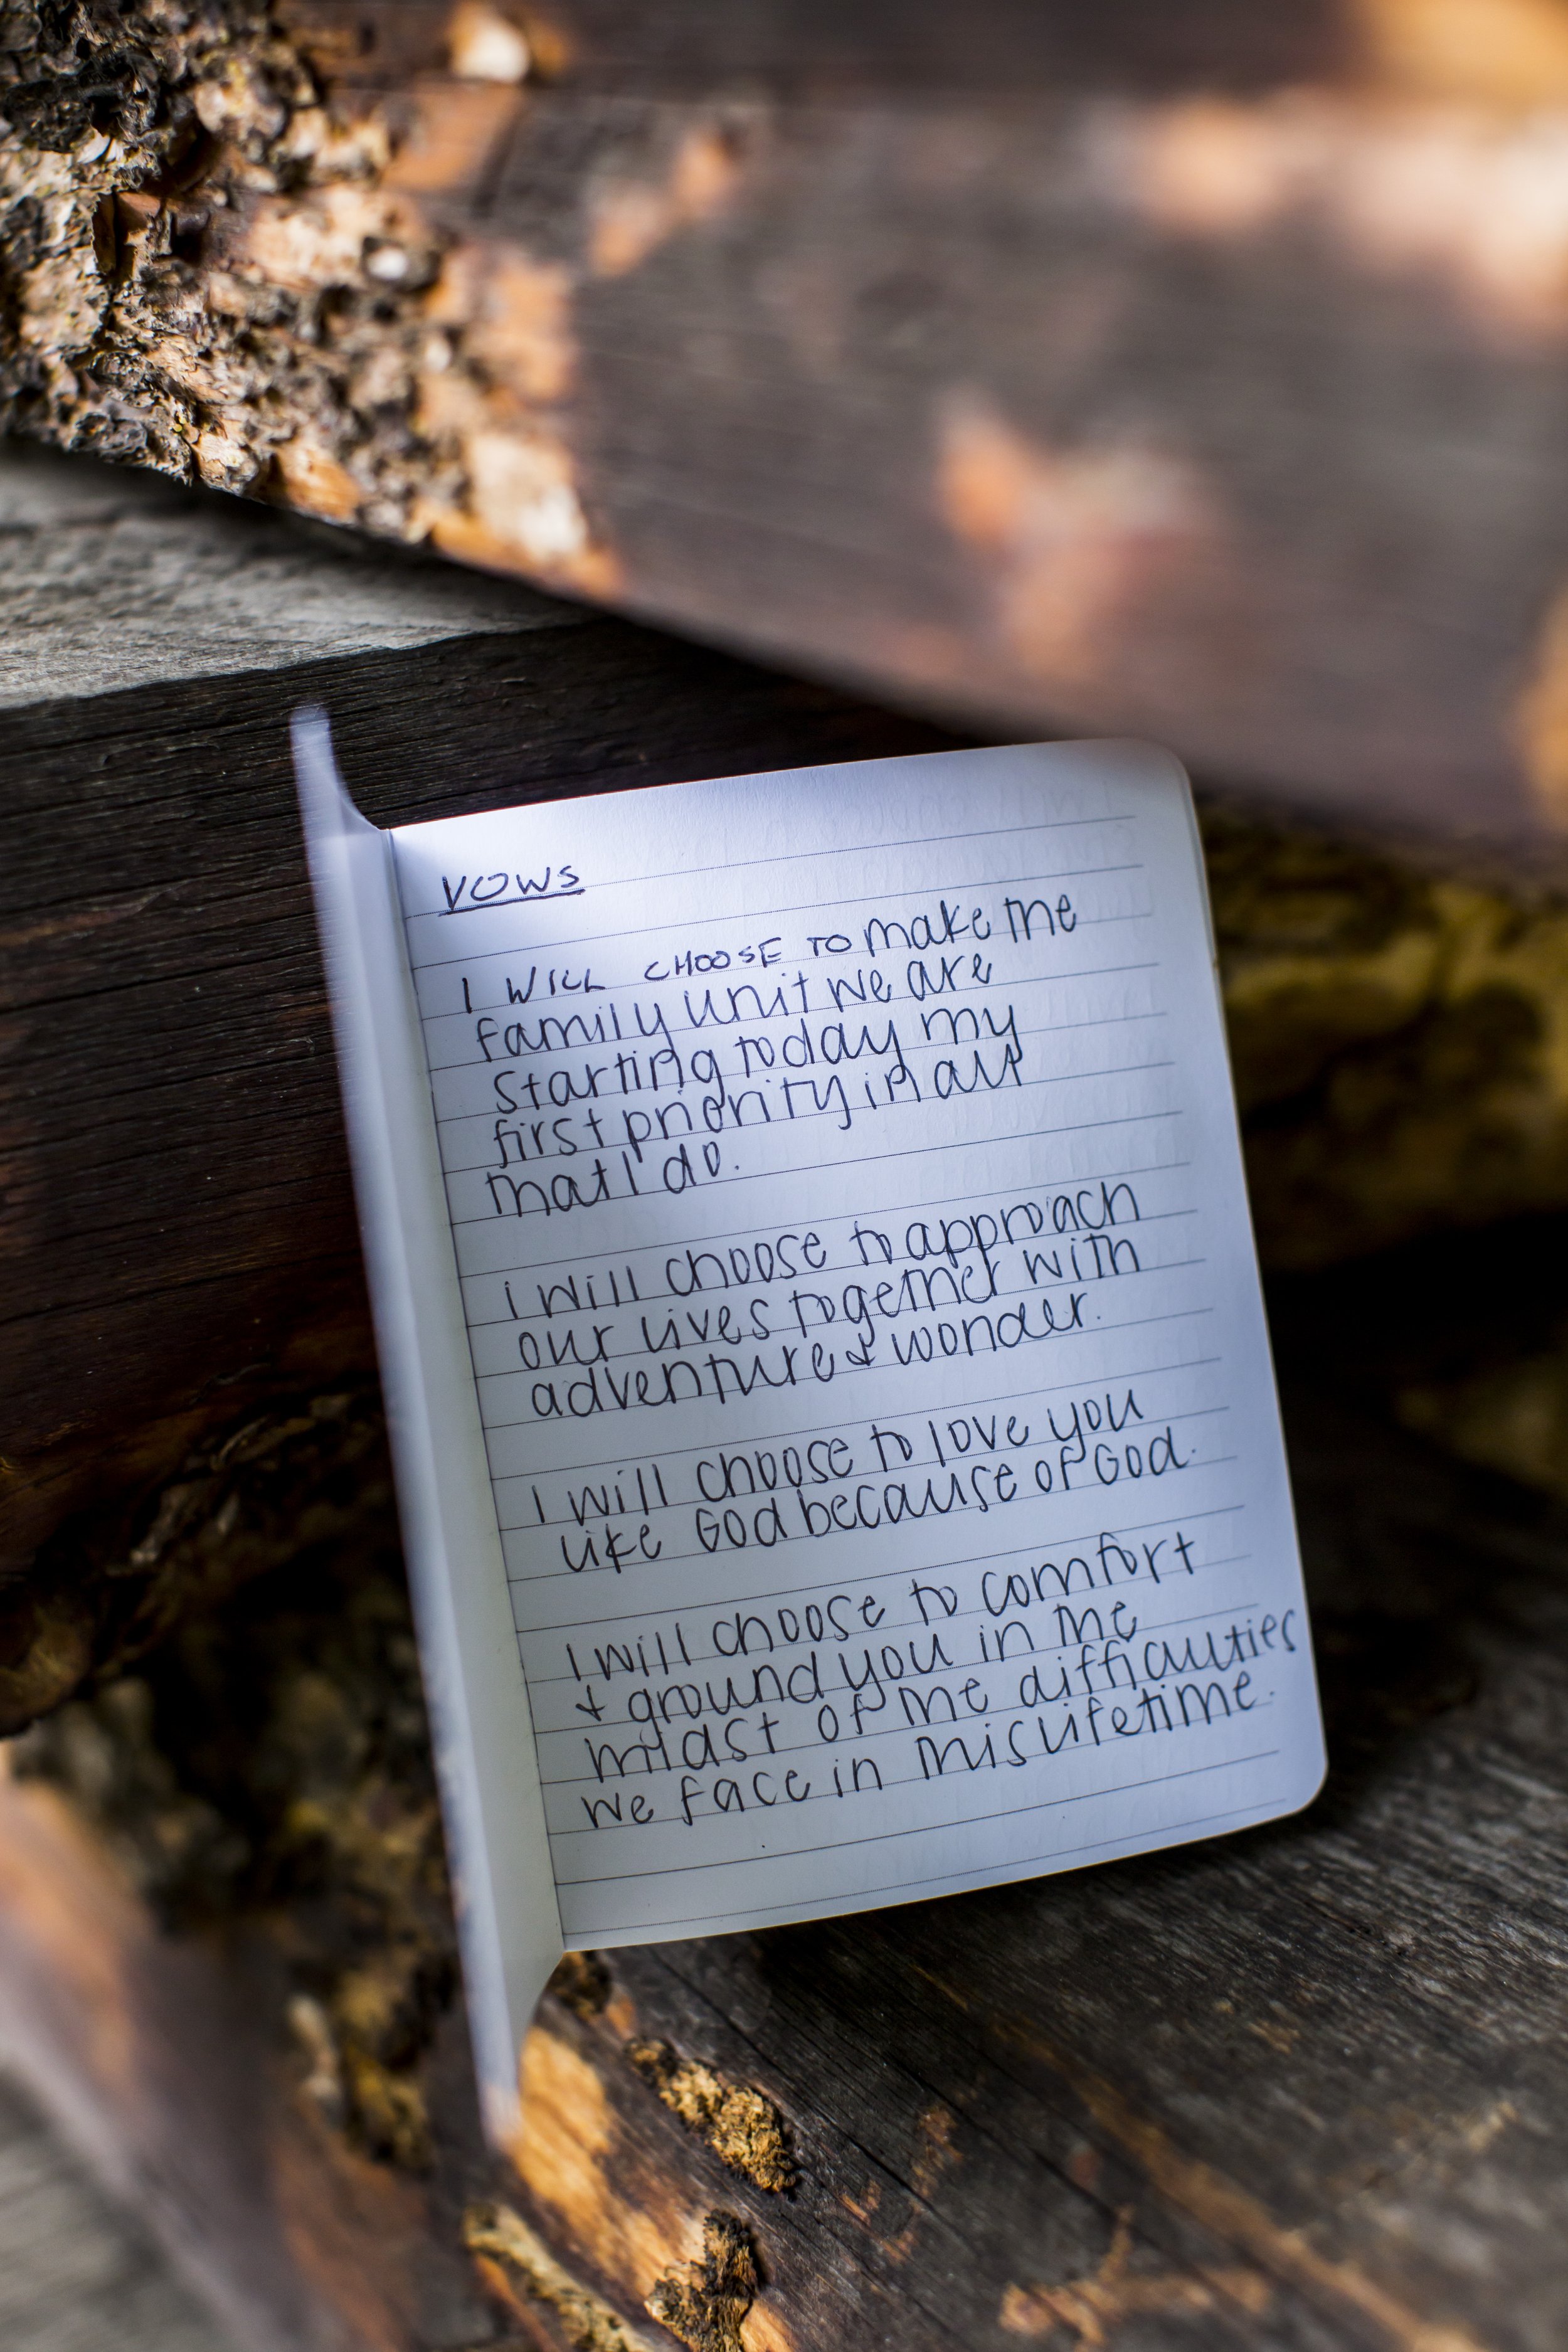 VOWS
I WILL CHOOSE TO make the
family unit we are
starting today my
first priority in all
that I do.
I will choose to approach
our lives together with
adventure & wonder.
I will choose to love you
like God because of God.
I will choose to comfort
& ground you in the
midst of the difficulties
we face in this lifetime.